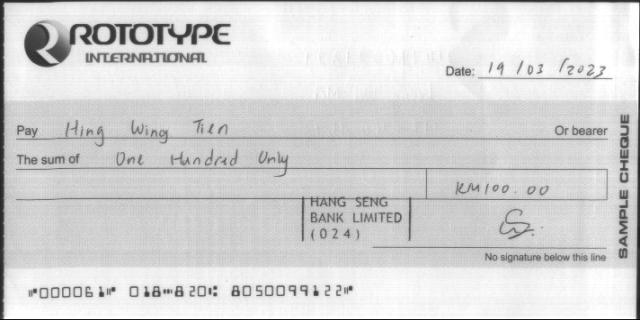 ROTOTYPE
INTERNATIONAL
Date: 19/03/2023
Pay Hing Wing Tien Or bearer
The sum of One Hundred Only
RM100.00
HANG SENG
BANK LIMITED
(024)
No signature below this line
SAMPLE CHEQUE
⑈000061⑈ 018⑉820⑆ 8050099122⑈